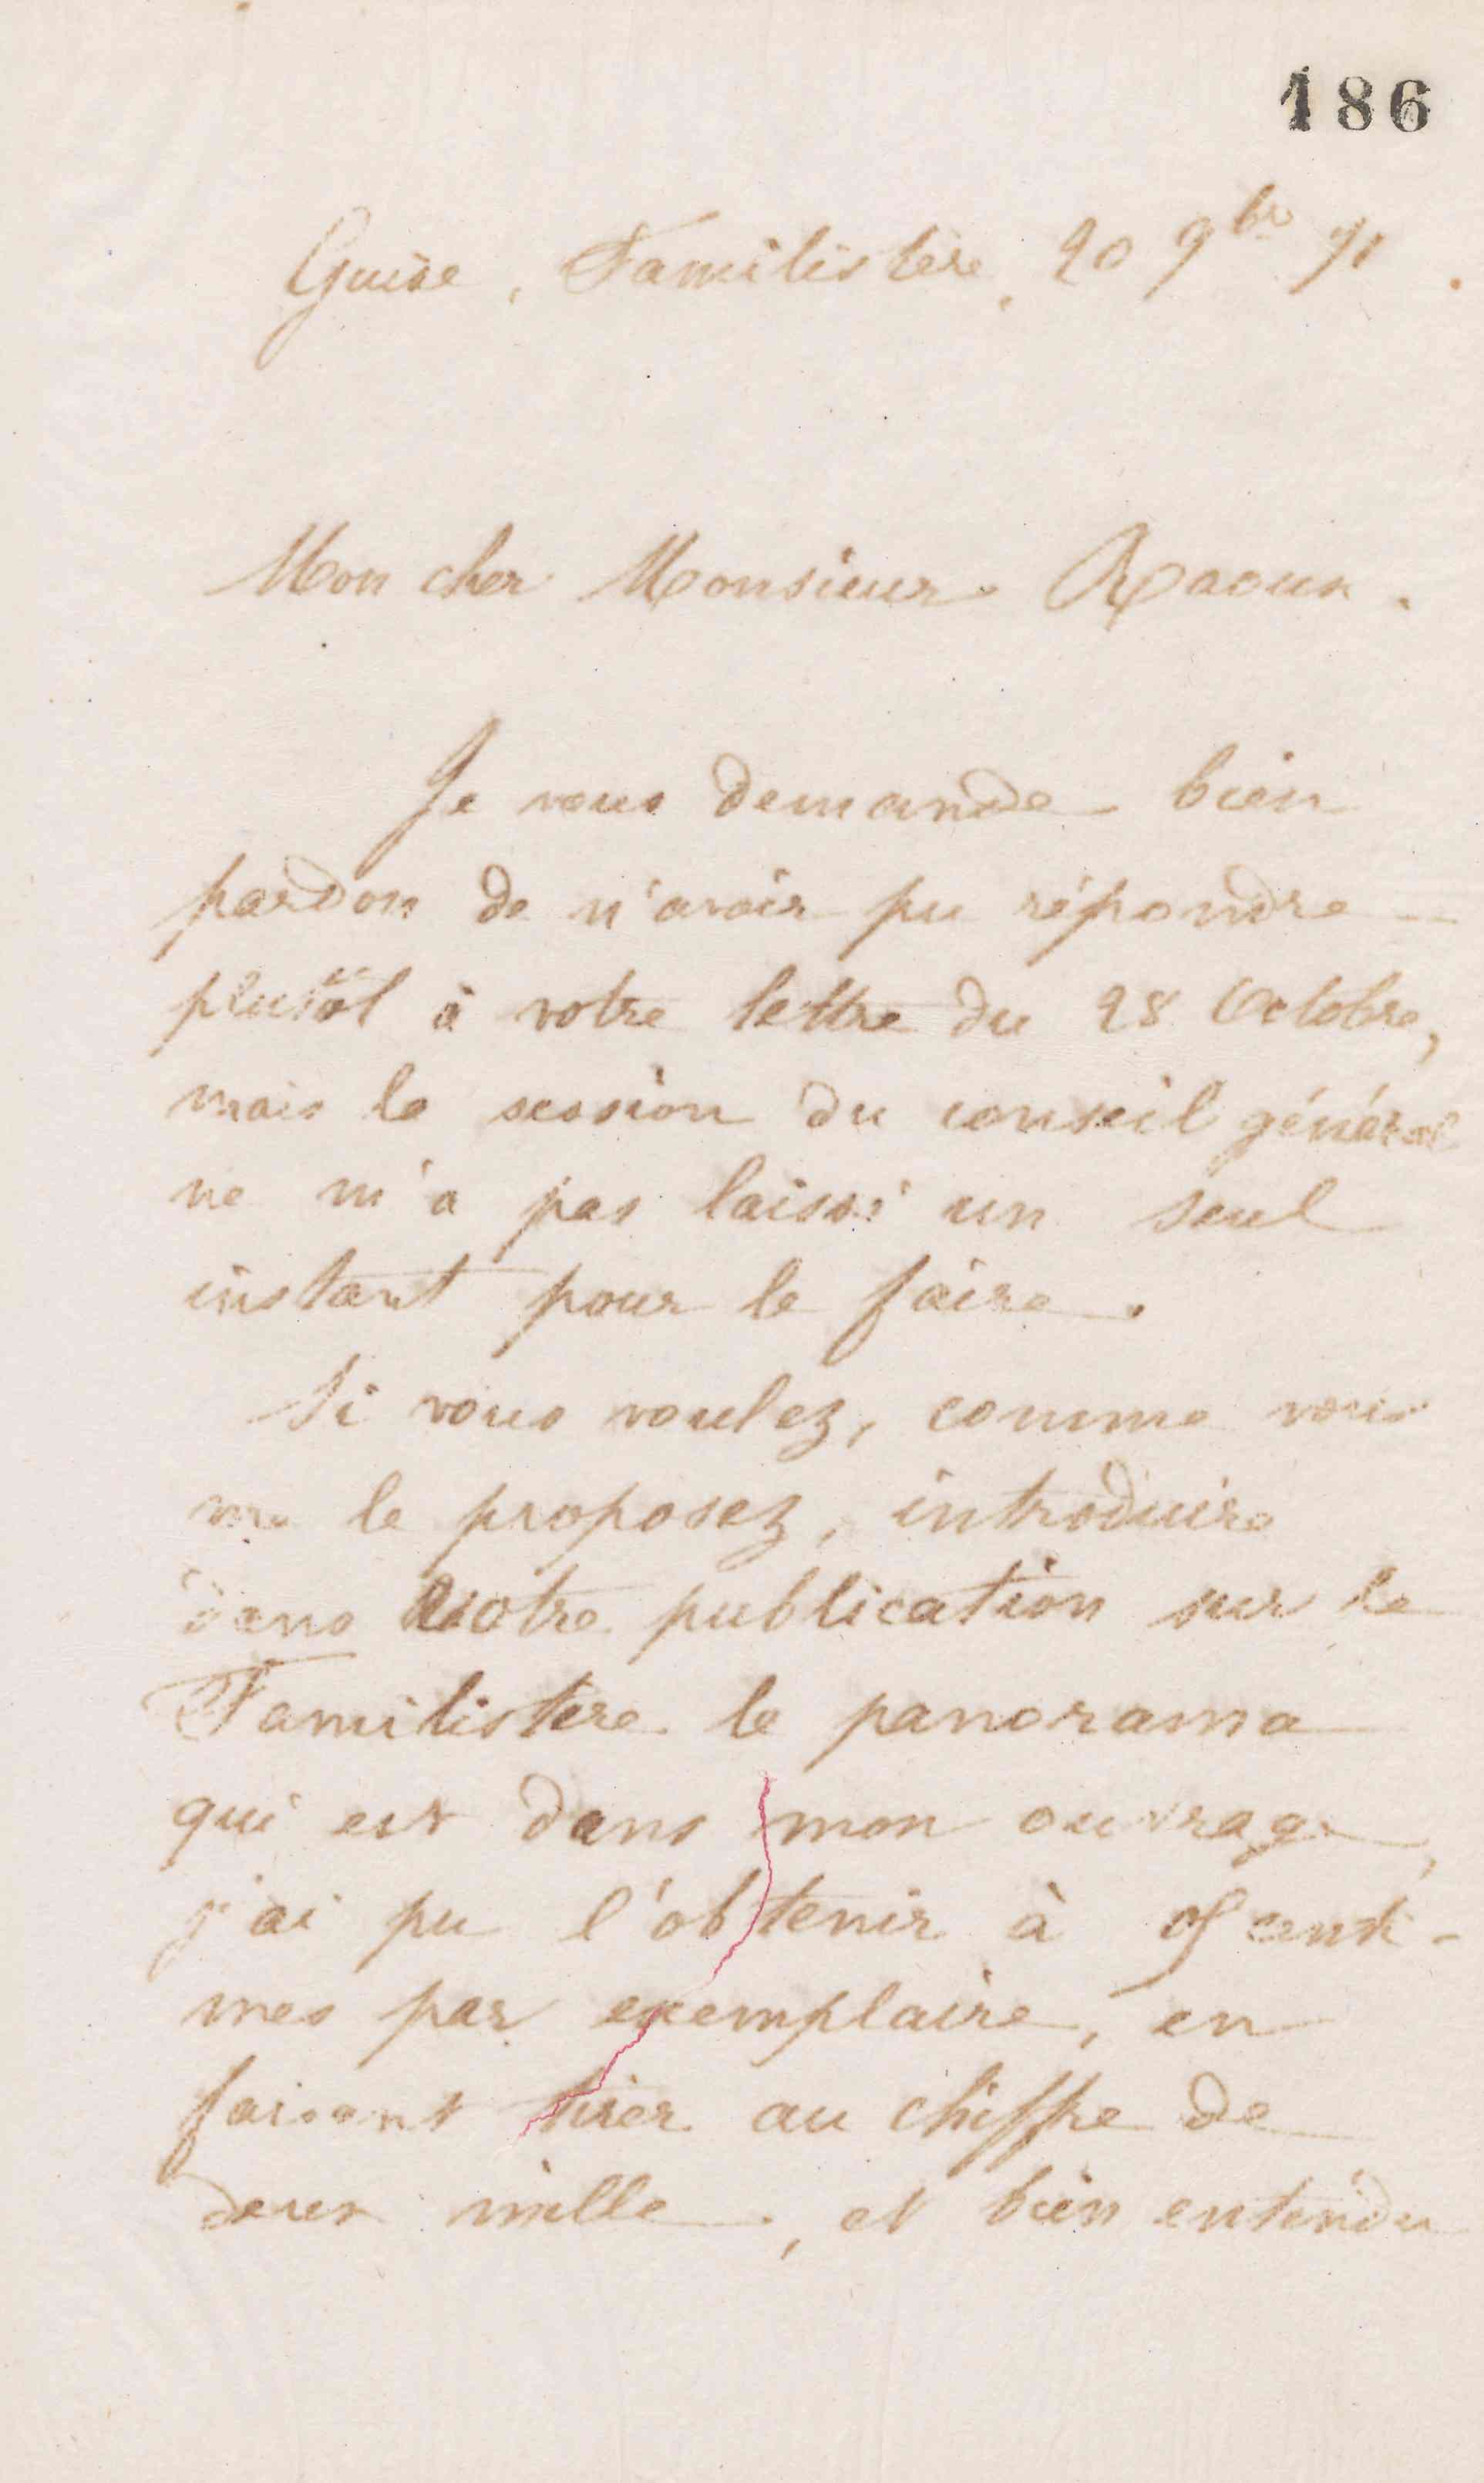 186
Guise, Familistère, 20 9bre 71.
Mon cher Monsieur Raoux.
Je vous demande bien
pardon de n'avoir pu répondre
plutôt à votre lettre du 28 Octobre,
mais la session du conseil général
ne m'a pas laissé un seul
instant pour le faire.
Si vous voulez, comme vous
me le proposez, introduire
dans votre publication sur le
Familistère le panorama
qui est dans mon ouvrage,
j'ai pu l'obtenir à
mes par exemplaire, en
faisant tirer au chiffre de
deux mille, et bien entendu